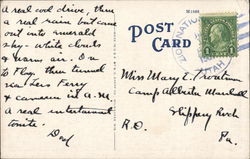 a real cool drive, then
a real rain but came
out into emerald
sky - white clouds
& warm air. On
to Flag. then tunnel
Lees Ferry
& cameron in a.m.
a real entertainment
tonite.
Dad
POST CARD
NATIONAL
UTAH
1
Miss Mary E.
Camp Alberta Marshall
Slippery Rock
R.D.
Pa.